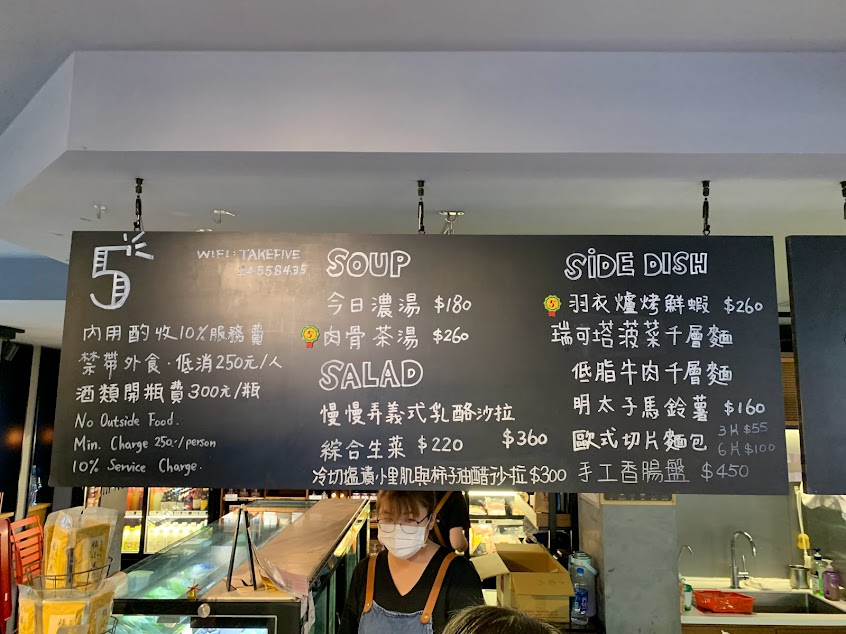 5
WIFI: TAKEFIVE
内用酌收10%服務費
禁帶外食·低消250元/人
酒類開瓶費300元/瓶
No Outside Food.
Min. Charge 250.-/person
10% Service Charge.
SOUP
今日濃湯 $180
肉骨茶湯 $260
SALAD
慢慢弄義式乳酪沙拉 $360
綜合生菜 $220
冷切塩漬小里肌與柿子油醋沙拉 $300
SiDE DISH
羽衣爐烤鮮蝦 $260
瑞可塔菠菜千層麵
低脂牛肉千層麵
明太子馬鈴薯 $160
歐式切片麵包 3片 $55
6片 $100
手工香腸盤 $450